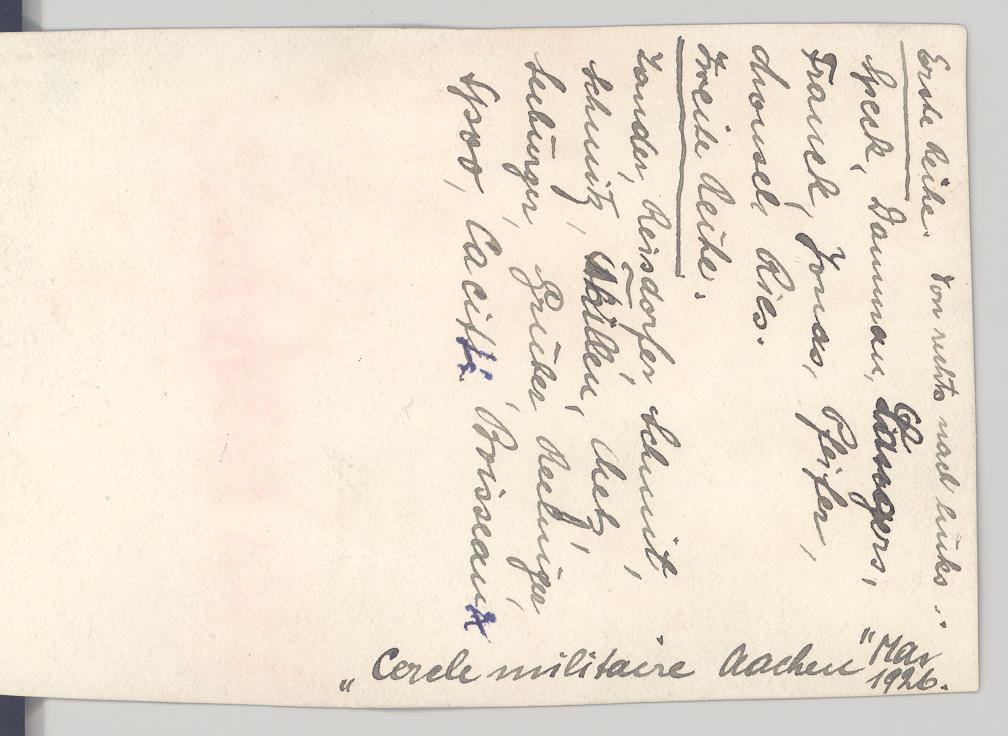 Erste Reihe. Von rechts nach links :.
Speck, Damman, Langers,
Franck, Jonas, Pfeifer,
Ries.
Zweite Reihe.
Zander, Reisdorfer, Schmit,
Schmitz, Thillen, Metz,
Seburger, Gruber, Reckinger,
Spoo, Caciti, Boisseaux
„Cercle militaire Aachen" Mai
1926.